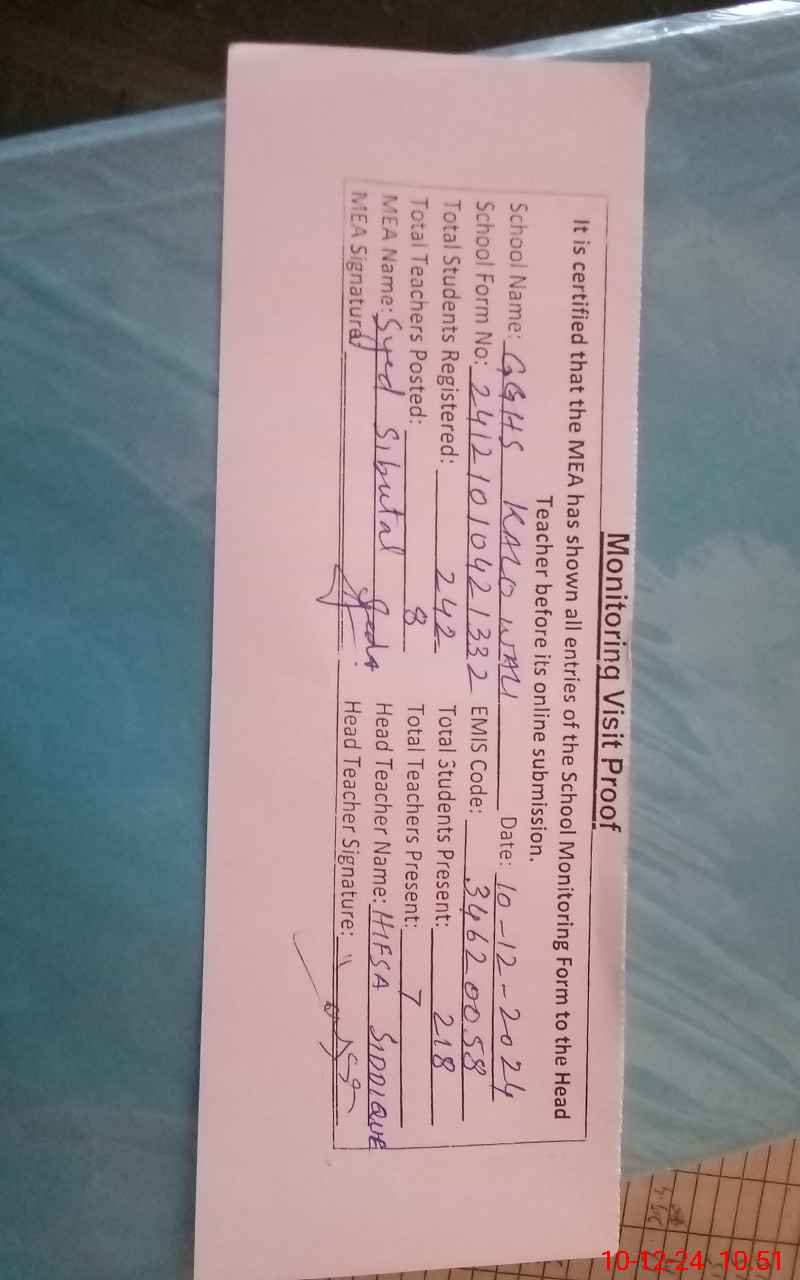 Monitoring Visit Proof
It is certified that the MEA has shown all entries of the School Monitoring Form to the Head
Teacher before its online submission.
School Name: GGHS KALO WALI Date: 10-12-2024
School Form No: 2412101042 1332 EMIS Code: 34620058
Total Students Registered: 242 Total Students Present: 218
Total Teachers Posted: 8 Total Teachers Present: 7
MEA Name: Syed Sibutal Head Teacher Name: HIFSA SIDDIQUE
MEA Signature: Head Teacher Signature:
10-12-24 10:51